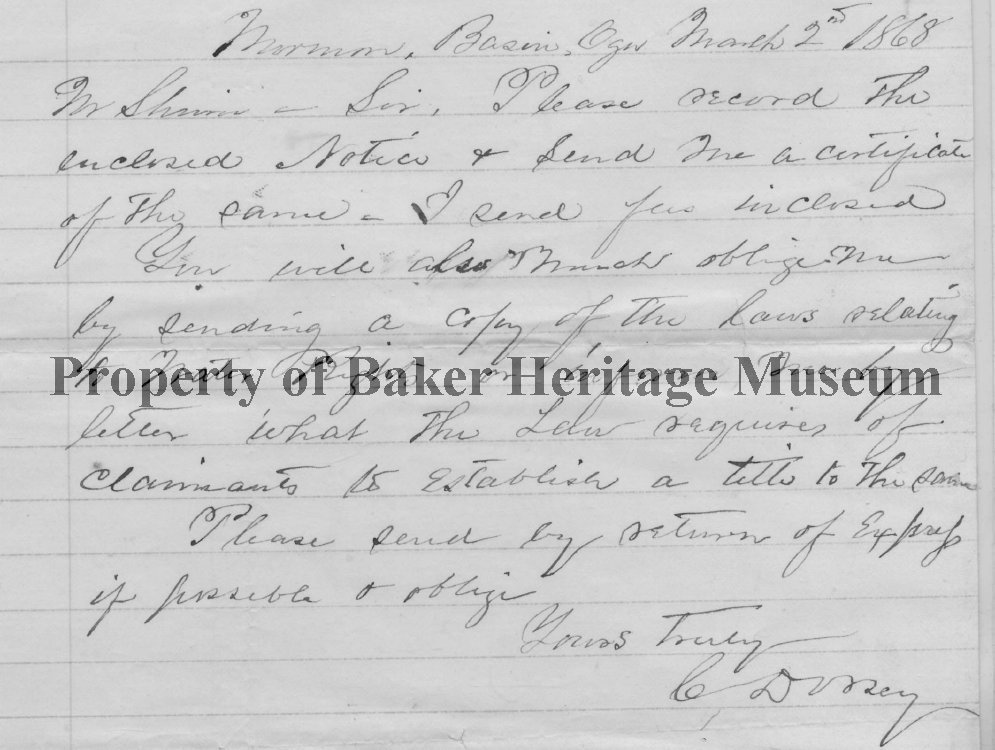 Mormon, Basin, Ogn March 2nd 1868
Mr Shinn - Sir, Please record the
enclosed Notice & send me a certificate
of the same - I send fees inclosed
You will also Much oblige me
by sending a copy of the laws relating
to Water Rights or inform me by
Property of Baker Heritage Museum
letter what the Law requires of
claimants to establish a title to the same
Please send by return of Express
if possible & oblige
Yours truly
C Dorsey